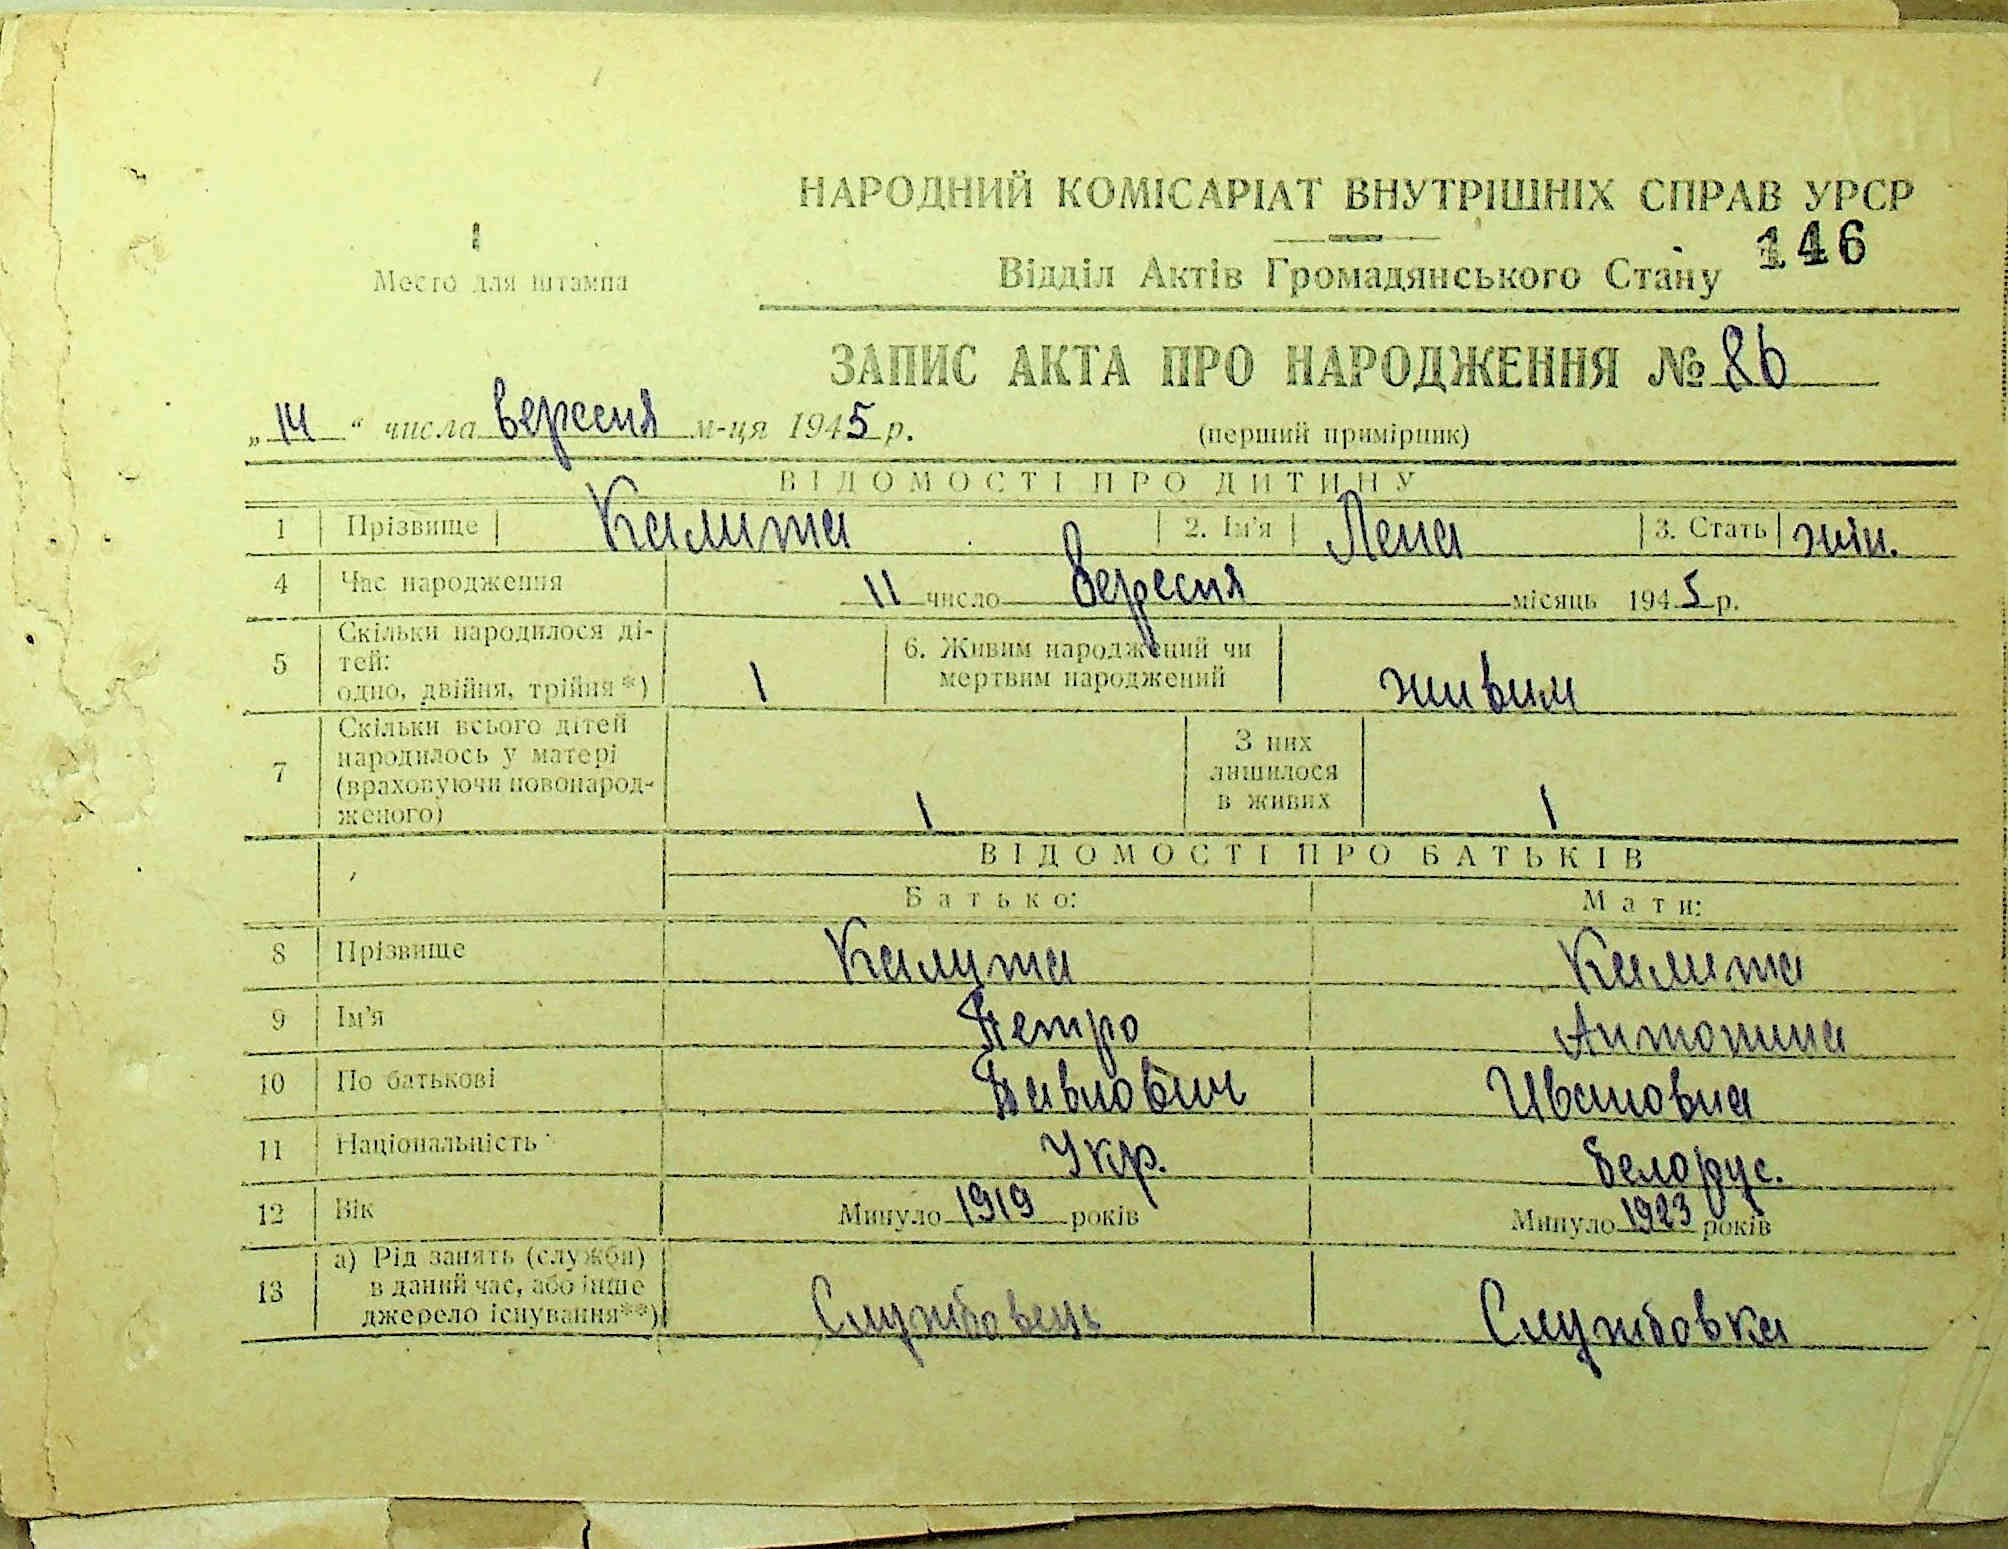 НАРОДНИЙ КОМІСАРІАТ ВНУТРІШНІХ СПРАВ УРСР
146
Место для штампа
Відділ Актів Громадянського Стану
ЗАПИС АКТА ПРО НАРОДЖЕННЯ № 86
„14“ числа вересня м-ця 1945 р.
(перший примірник)
ВІДОМОСТІ ПРО ДИТИНУ
1 Прізвище Калита 2. Ім'я Лена 3. Стать жін.
4 Час народження 11 число вересня місяць 1945 р.
5 Скільки народилося ді-
тей:
одно, двійня, трійня*) 1
6. Живим народжений чи
мертвим народжений живим
7 Скільки всього дітей
народилось у матері
(враховуючи новонарод-
женого) 1
З них
лишилося
в живих 1
ВІДОМОСТІ ПРО БАТЬКІВ
Батько: Мати:
8 Прізвище Калита Калита
9 Ім'я Петро Антонина
10 По батькові Павлович Ивановна
11 Національність Укр. Белорус.
12 Вік Минуло 1919 років Минуло 1923 років
13 а) Рід занять (служби)
в даний час, або інше
джерело існування**) Службовець Службовка